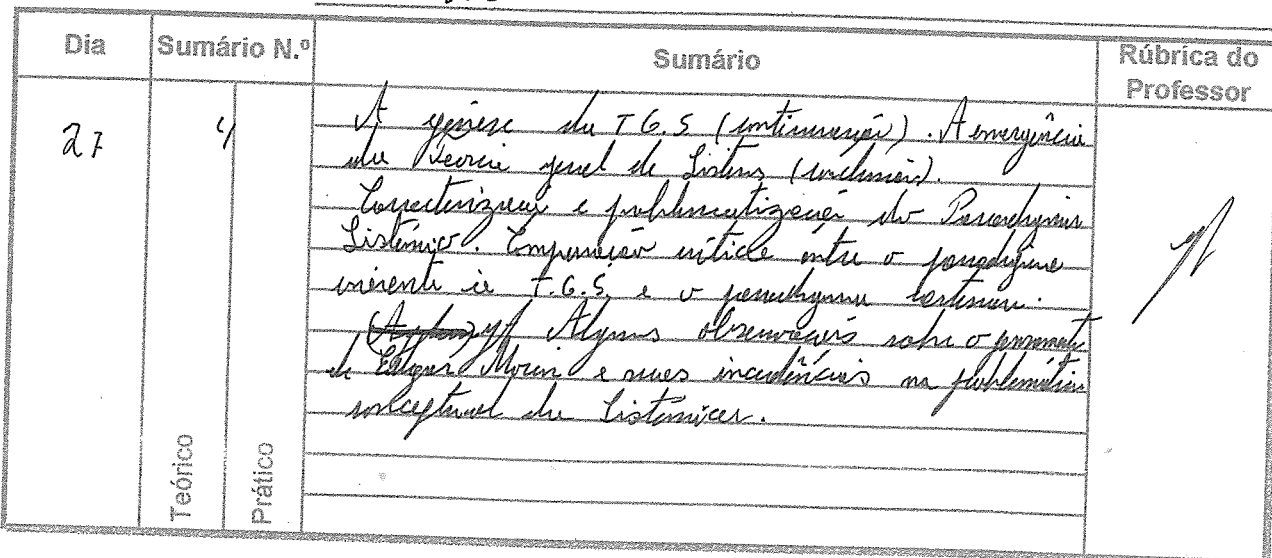 Dia
Sumário N.º
Sumário
Rúbrica do
Professor
27
4
A génese da T.G.S (continuação). A emergência
da teoria geral de Sistemas (conclusão).
Caracterização e problematização do Paradigma
Sistémico. Comparação crítica entre o paradigma
inerente à T.G.S. e o paradigma cartesiano.
Algumas observações sobre o pensamento
de Edgar Morin e suas incidências na problemática
conceptual da Sistémica.
Teórico
Prático